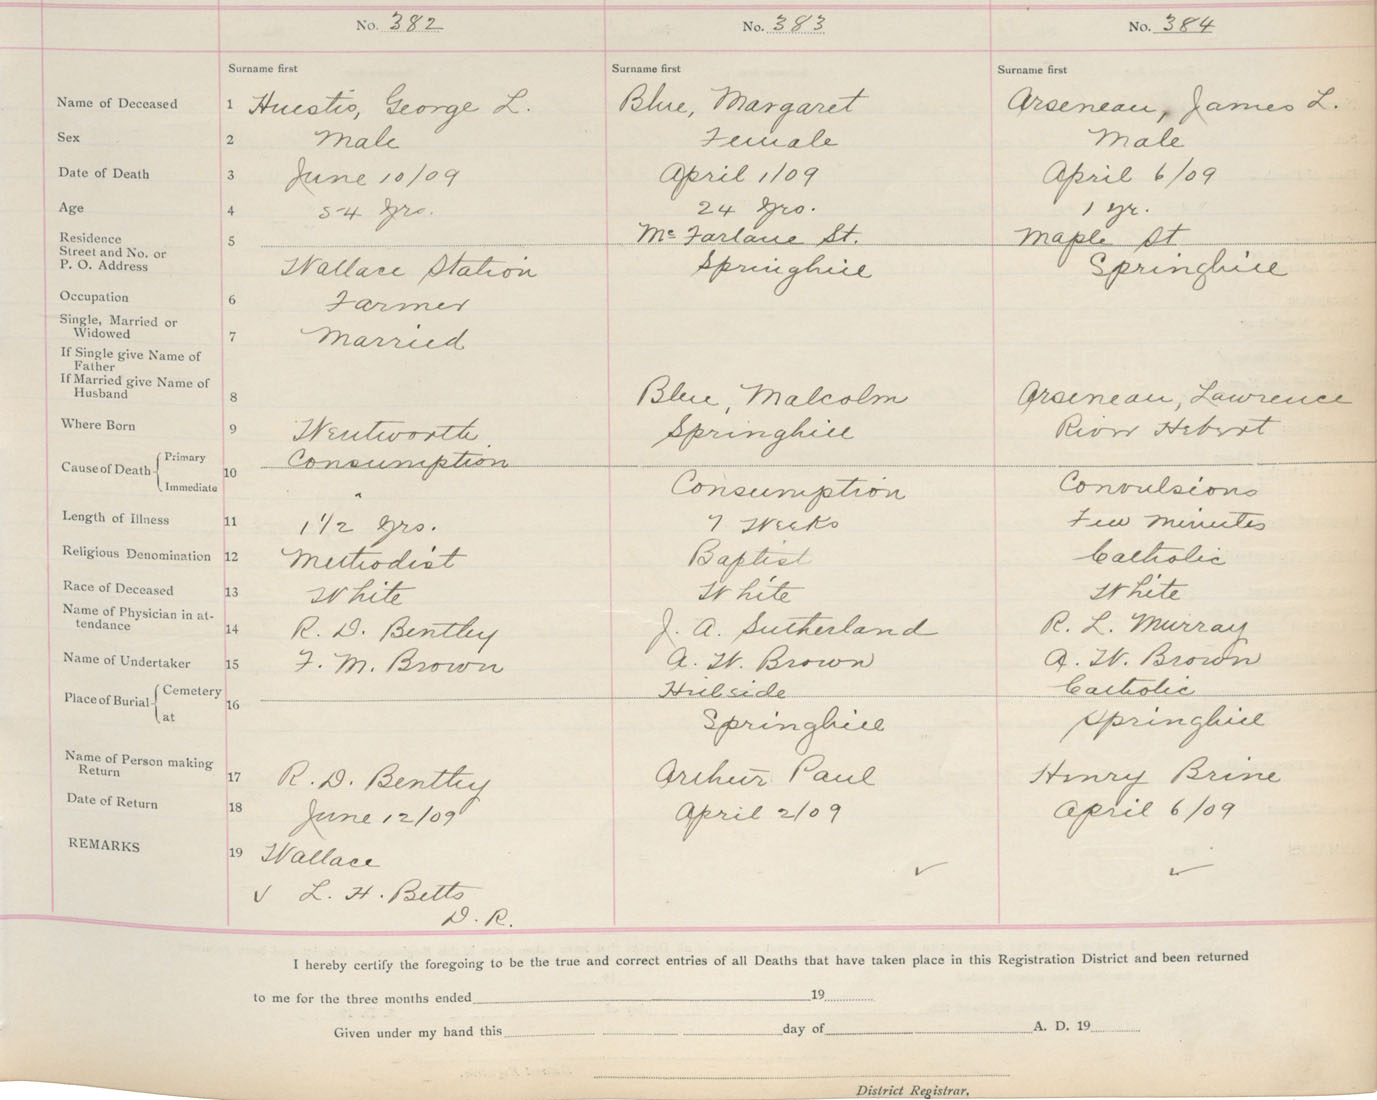 No. 382 No. 383 No. 384
Surname first Surname first Surname first
Name of Deceased 1 Huestis, George L. Blue, Margaret Arseneau, James L.
Sex 2 Male Female Male
Date of Death 3 June 10/09 April 1/09 April 6/09
Age 4 54 yrs. 24 yrs. 1 yr.
Residence 5 Mc Farlane St. Maple St
Street and No. or
P. O. Address Wallace Station Springhill Springhill
Occupation 6 Farmer
Single, Married or
Widowed 7 Married
If Single give Name of
Father
If Married give Name of
Husband 8 Blue, Malcolm Arseneau, Lawrence
Where Born 9 Wentworth. Springhill River Hebert
Cause of Death Primary 10 Consumption
Immediate " Consumption Convulsions
Length of Illness 11 1 1/2 yrs. 7 Weeks Few minutes
Religious Denomination 12 Methodist Baptist Catholic
Race of Deceased 13 White White White
Name of Physician in at-
tendance 14 R. D. Bentley J. A. Sutherland R. L. Murray
Name of Undertaker 15 F. M. Brown A. W. Brown A. W. Brown
Place of Burial Cemetery 16 Hillside Catholic
at Springhill Springhill
Name of Person making
Return 17 R. D. Bentley Arthur Paul Henry Brine
Date of Return 18 June 12/09 April 2/09 April 6/09
REMARKS 19 Wallace
✓ L. H. Betts ✓ ✓
D. R.
I hereby certify the foregoing to be the true and correct entries of all Deaths that have taken place in this Registration District and been returned
to me for the three months ended 19
Given under my hand this day of A. D. 19
District Registrar.